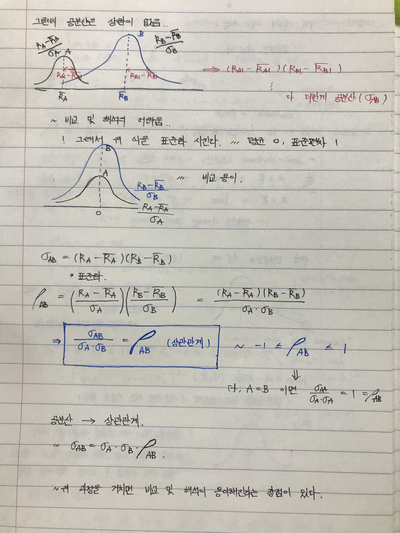 그런데 공분산은 상한이 없음..
R_A - R̄_A / σ_A   A   B   R_B - R̄_B / σ_B
R_A1 - R̄_A1   R_B1 - R̄_B1   ⇒ (R_A1 - R̄_A1)(R_B1 - R̄_B1)
R̄_A   R̄_B   ⋮
다 더한게 공분산 (σ_AB)
~ 비교 및 해석의 어려움..
! 그래서 위 식을 표준화 시킨다. ··· 평균 0, 표준편차 1
B
A   ··· 비교 용이.
R_B - R̄_B / σ_B
0   R_A - R̄_A / σ_A
σ_AB = (R_A - R̄_A)(R_B - R̄_B)
* 표준화.
ρ_AB = (R_A - R̄_A / σ_A)(R_B - R̄_B / σ_B) = (R_A - R̄_A)(R_B - R̄_B) / σ_A · σ_B
⇒ σ_AB / σ_A · σ_B = ρ_AB (상관관계)   ~ -1 ≤ ρ_AB ≤ 1
⇓
단, A=B 이면 σ_AA / σ_A · σ_A = 1 = ρ_AB
공분산 → 상관관계.
··· σ_AB = σ_A · σ_B · ρ_AB.
~ 위 과정을 거치면 비교 및 해석이 용이해진다는 장점이 있다.